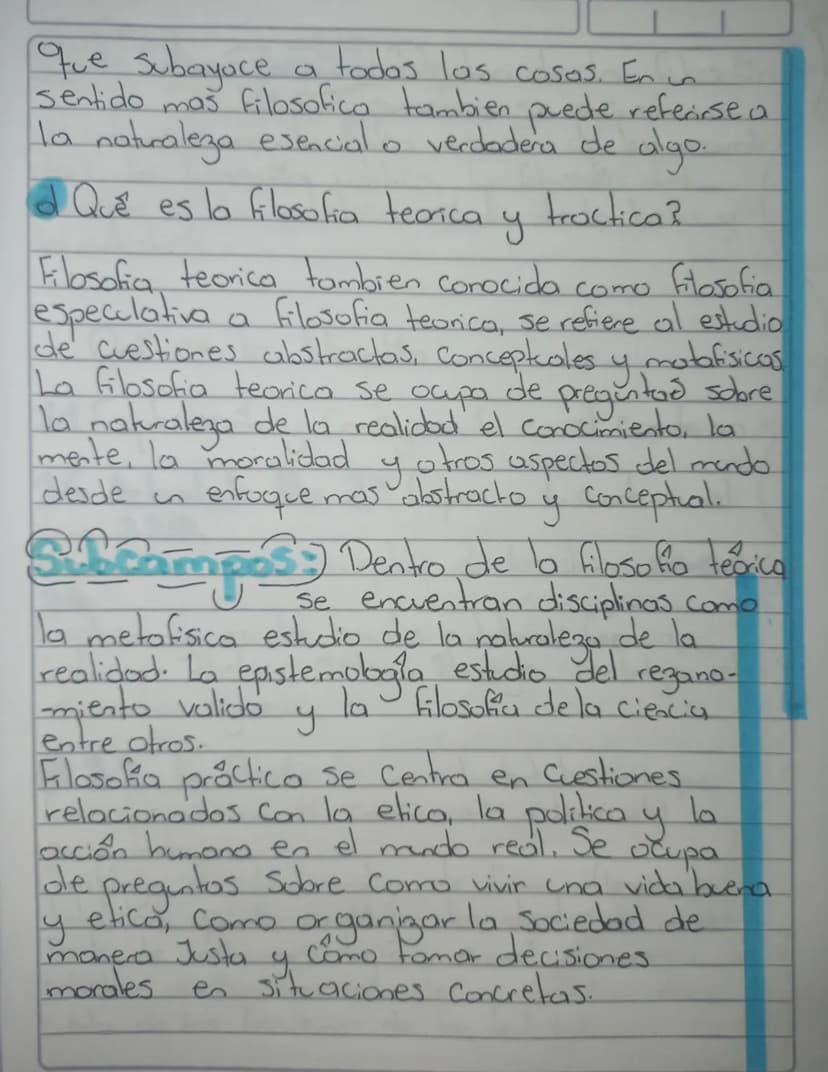 que subayace a todas las cosas. En un
sentido mas filosofico tambien puede referirse a
la naturaleza esencial o verdadera de algo.
d Qué es la filosofia teorica y tractica?
Filosofia teorica tambien conocida como filosofia
especulativa a filosofia teorica, se refiere al estudio
de cuestiones abstractas, conceptuales y metafisicas
La filosofia teorica se ocupa de preguntas sobre
la naturaleza de la realidad el conocimiento, la
mente, la moralidad y otros aspectos del mundo
desde un enfoque mas abstracto y conceptual.
Subcampos: Dentro de la filosofia teórica
se encuentran disciplinas como
la metafisica estudio de la naturaleza de la
realidad. La epistemología estudio del rezona-
-miento valido y la filosofía de la ciencia
entre otros.
Filosofía práctica se centra en cuestiones
relacionados con la etica, la politica y la
acción humana en el mundo real. Se ocupa
de preguntas sobre como vivir una vida buena
y etica, como organizar la sociedad de
manera Justa y cómo tomar decisiones
morales en situaciones concretas.